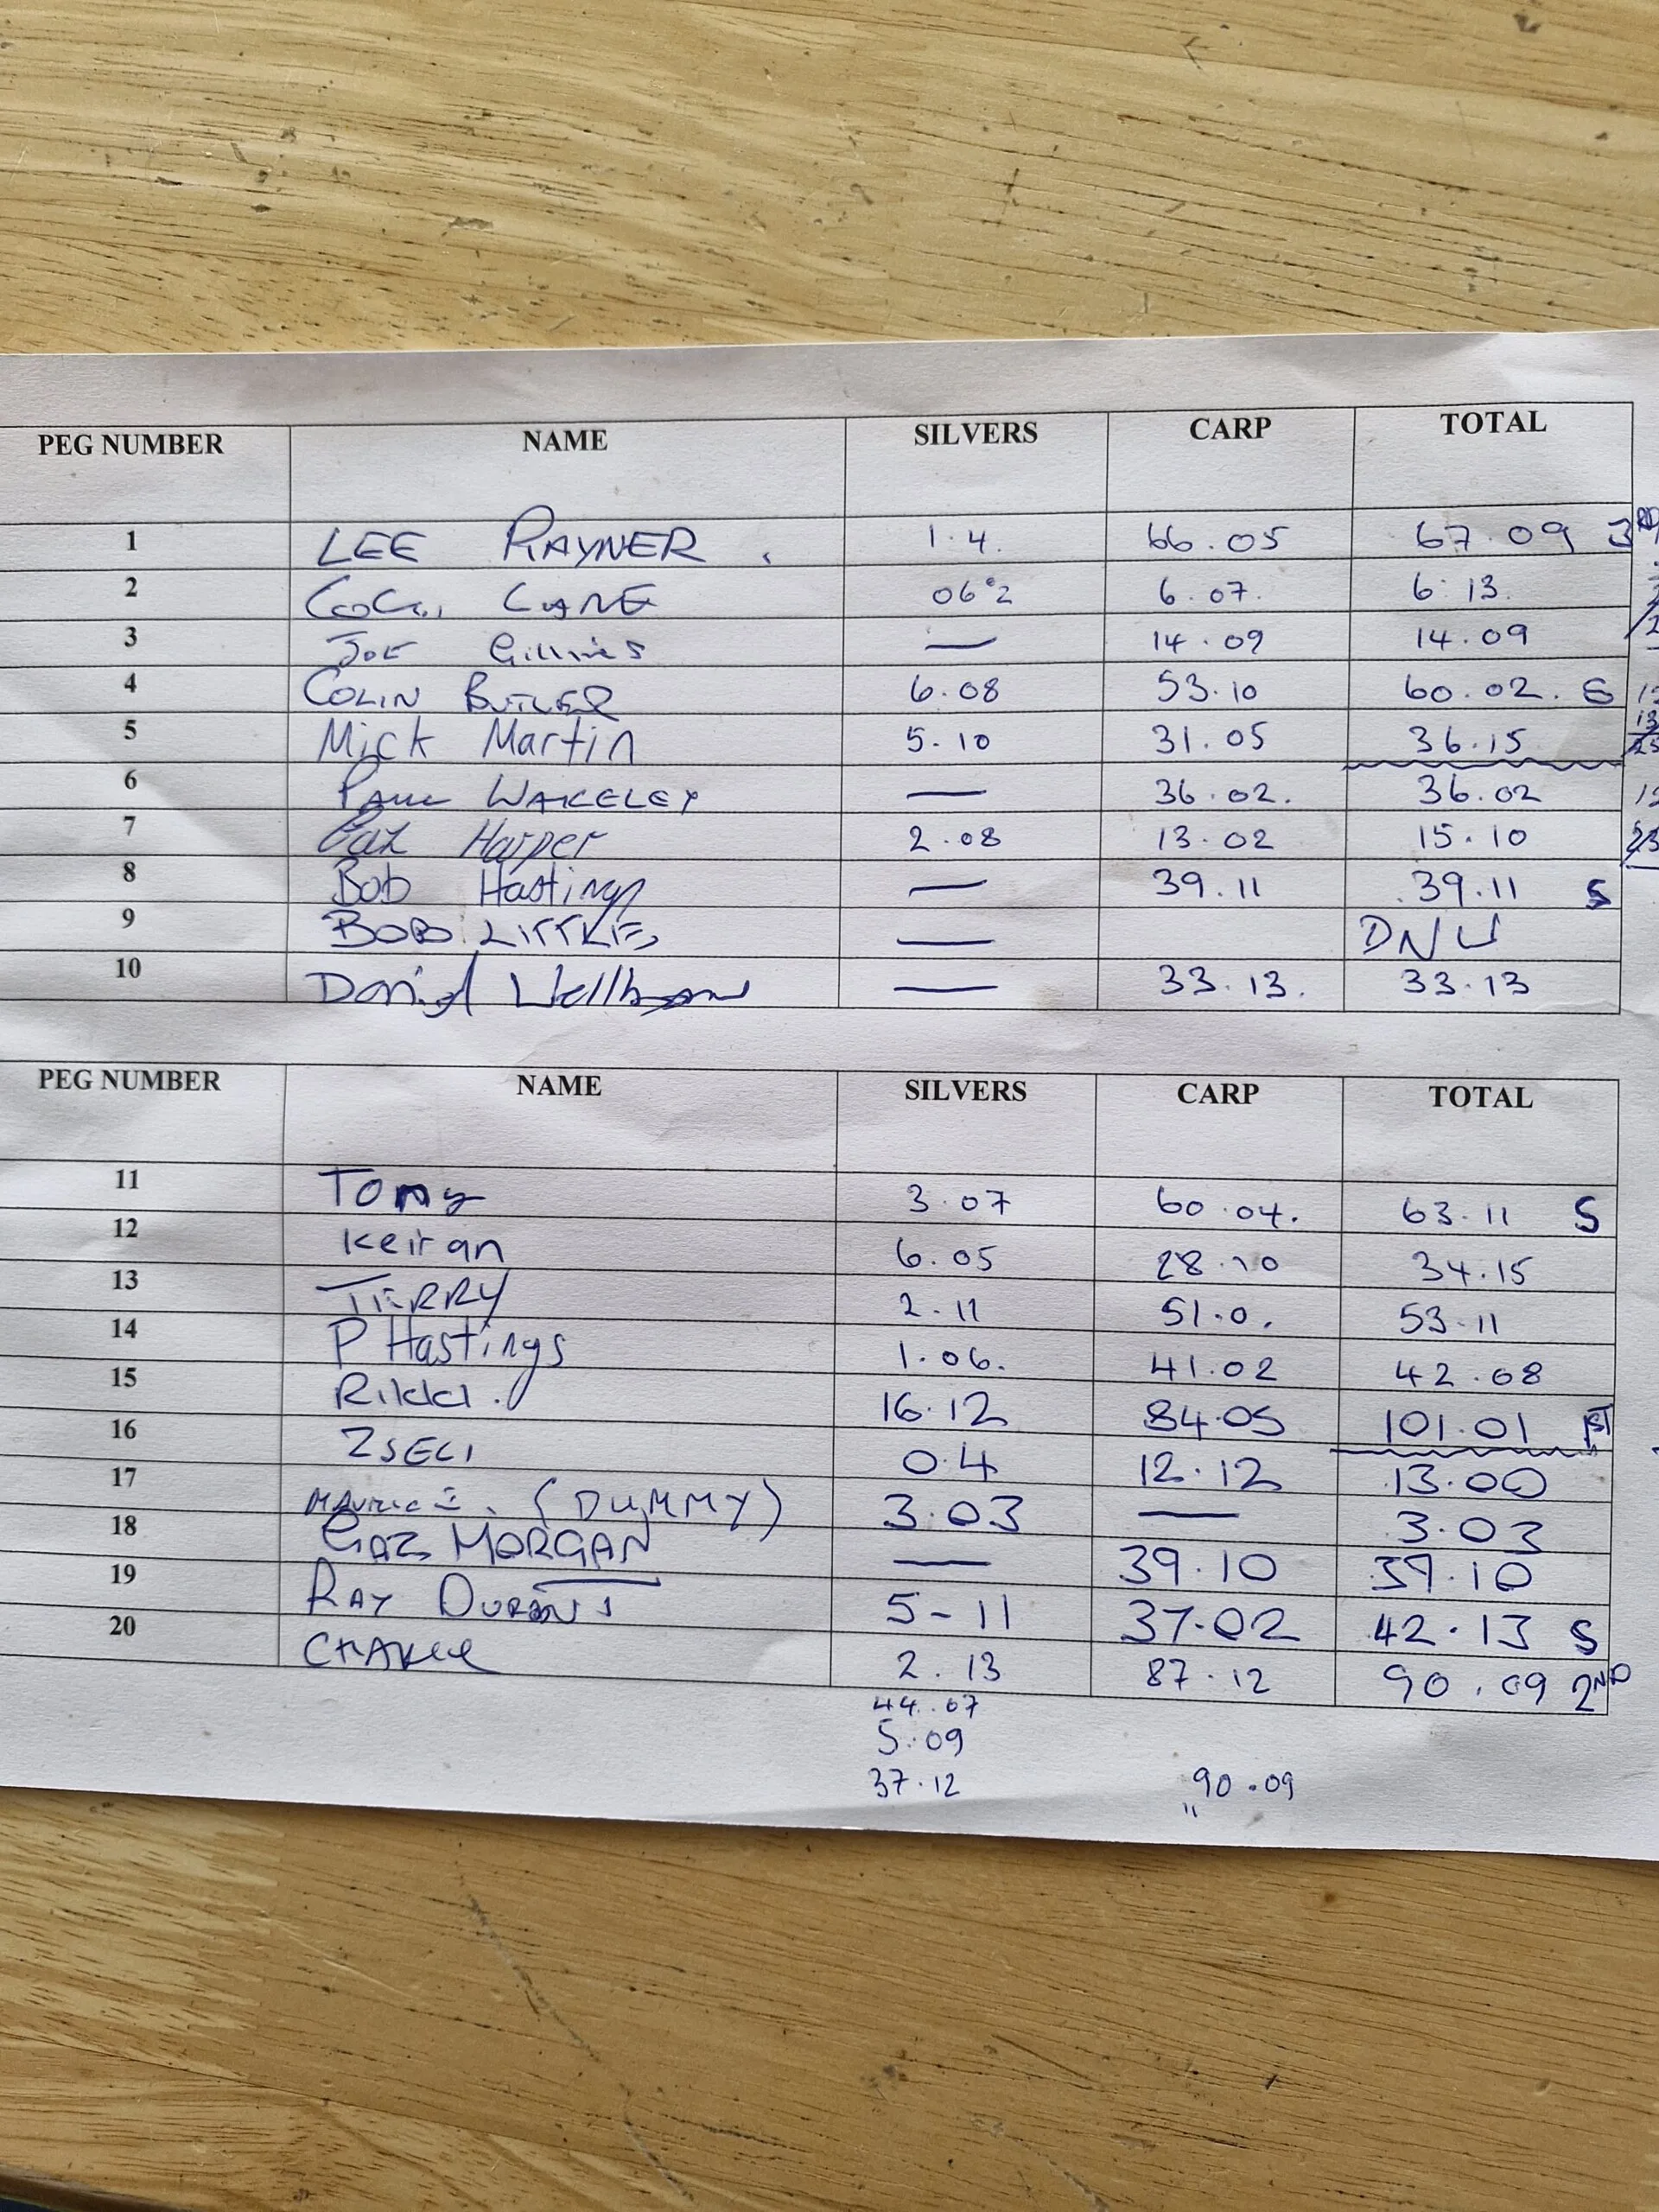 PEG NUMBER NAME SILVERS CARP TOTAL
1 LEE RAYNER. 1.4. 66.05 67.09 3RD
2 6.07. 6.13.
3 JOE Gillies — 14.09 14.09
4 COLIN BUTLER 6.08 53.10 60.02. S
5 Mick Martin 5.10 31.05 36.15
6 PAUL WAKELEY — 36.02. 36.02
7 Harper 2.08 13.02 15.10
8 Bob Hastings — 39.11 .39.11 S
9 BOB LITTLE — DNW
10 Daniel — 33.13. 33.13
PEG NUMBER NAME SILVERS CARP TOTAL
11 Tony 3.07 60.04. 63.11 S
12 Keiran 6.05 28.10 34.15
13 TERRY 2.11 51.0. 53.11
14 P Hastings 1.06. 41.02 42.08
15 Rikki. 16.12 84.05 101.01 1ST
16 ZSECI 0.4 12.12 13.00
17 (DUMMY) 3.03 — 3.03
18 GAZ MORGAN — 39.10 39.10
19 RAY DURANT 5-11 37.02 42.13 S
20 CHARLIE 2.13 87.12 90.09 2ND
44.07
5.09
37.12 90.09